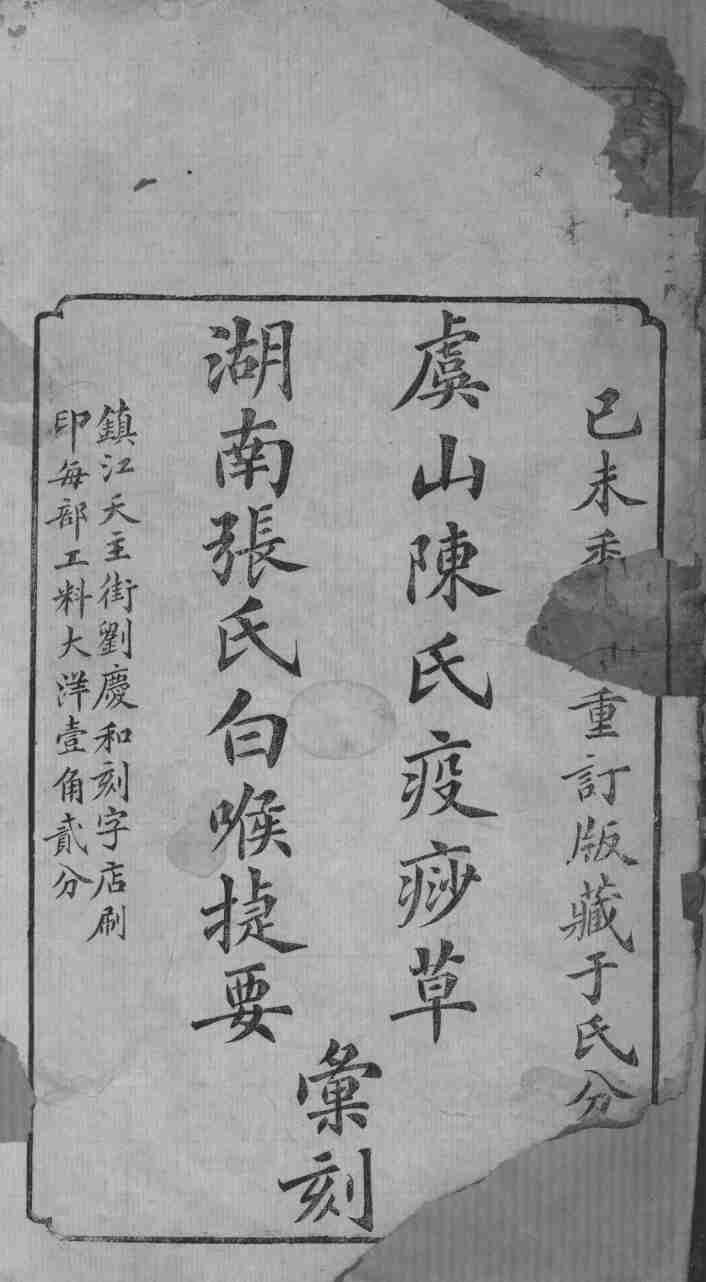 己未重訂版藏于氏分
虞山陳氏疫痧草
湖南張氏白喉捷要
彙刻
鎮江天主街劉慶和刻字店刷
印每部工料大洋壹角貳分